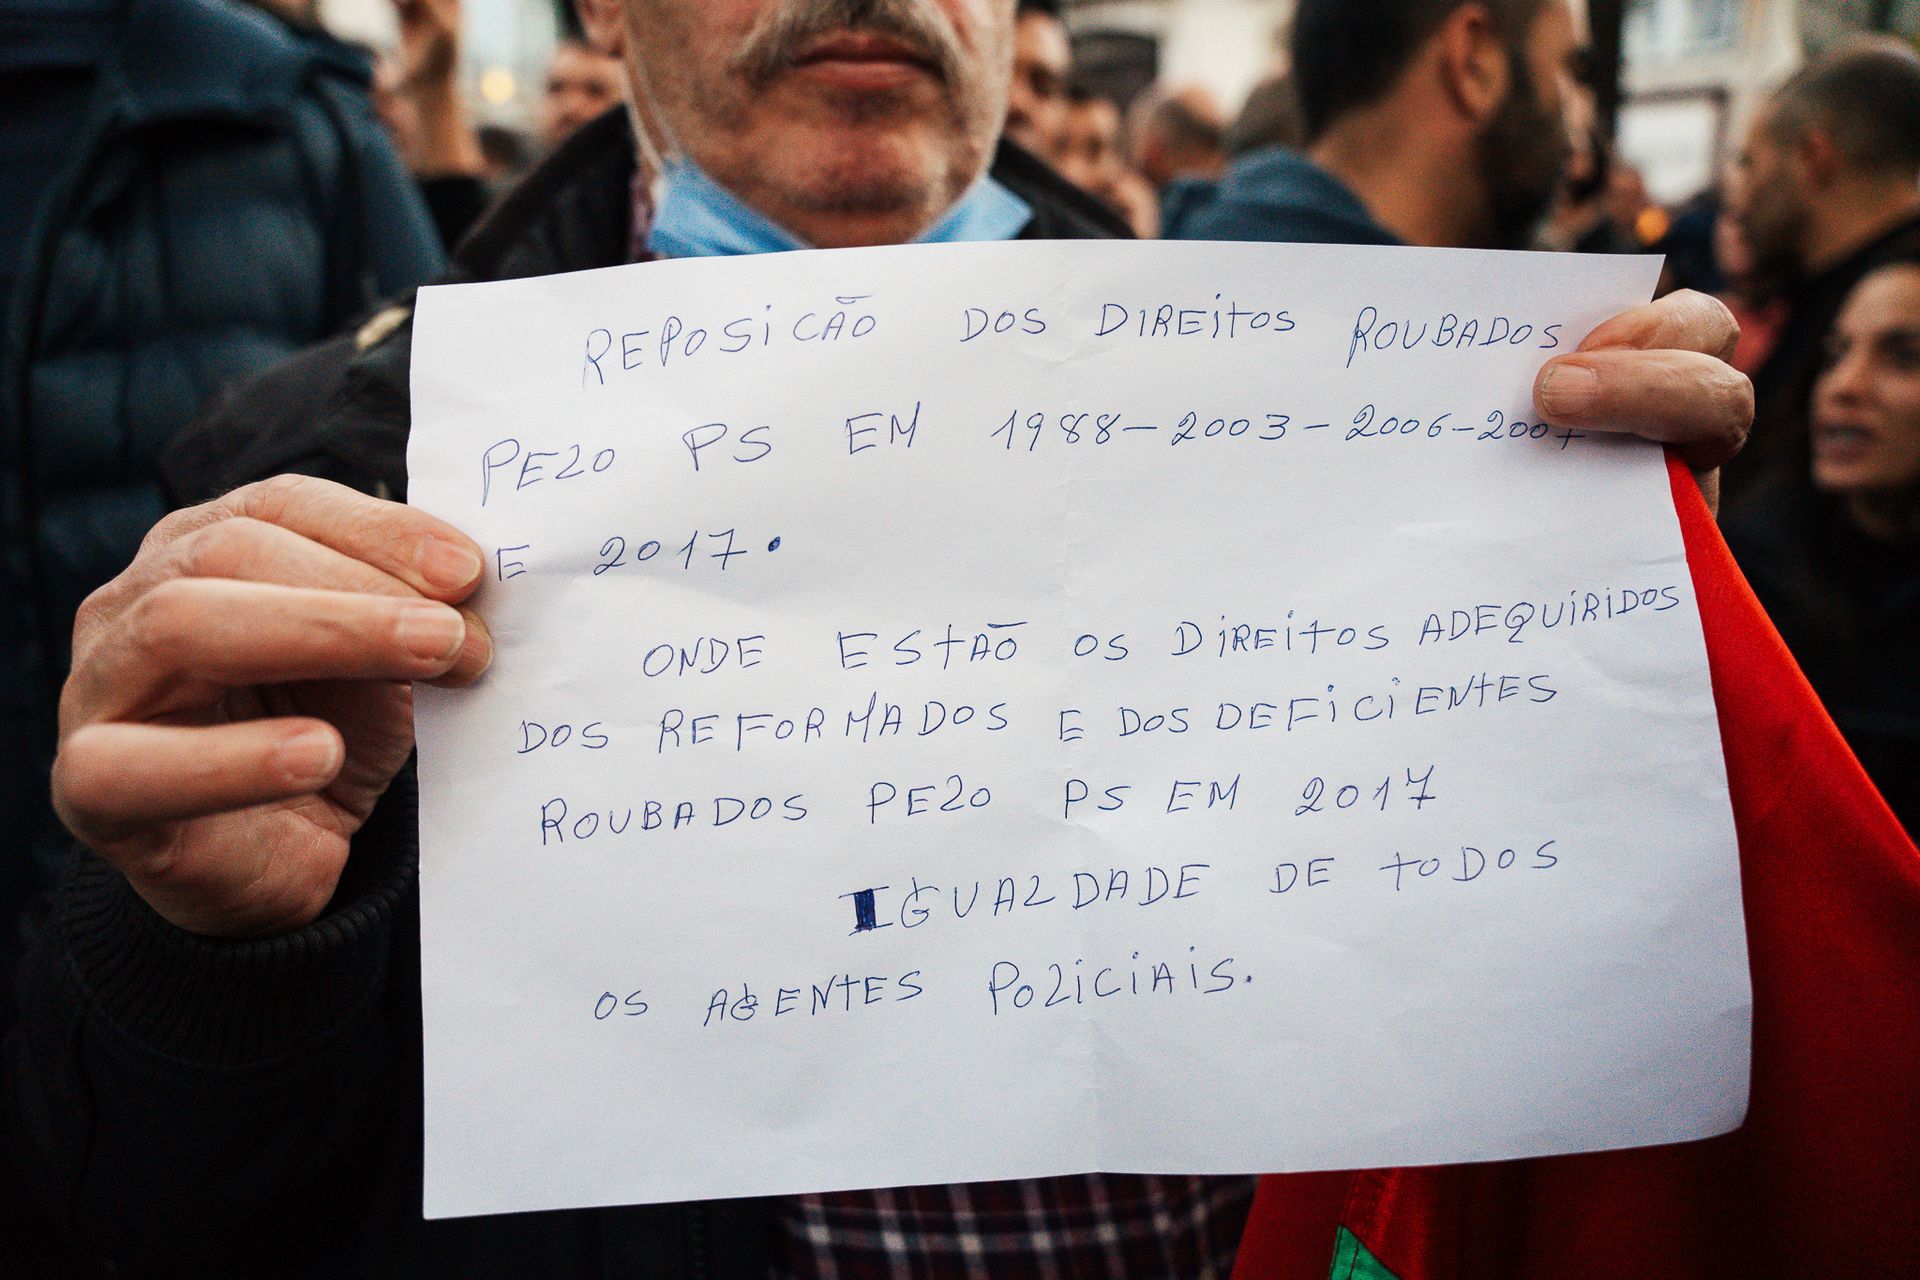 REPOSiCÃO DOS DIREITOS ROUBADOS
PELO PS EM 1988-2003-2006-2007
E 2017.
ONDE ESTÃO OS DIREITOS ADEQUIRIDOS
DOS REFORMADOS E DOS DEFICIENTES
ROUBADOS PELO PS EM 2017
IGUALDADE DE TODOS
OS AGENTES POLICIAIS.